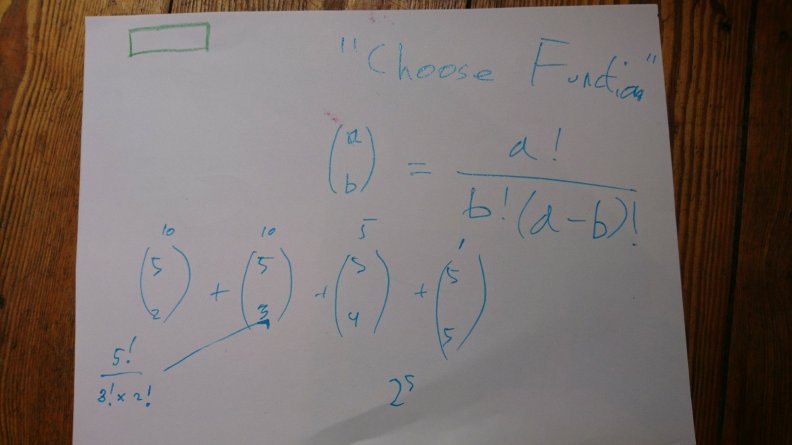 "Choose Function"
(a b) = a! / b!(a-b)!
10 10 5 1
(5 2) + (5 3) + (5 4) + (5 5)
5! / 3! × 2!
2⁵